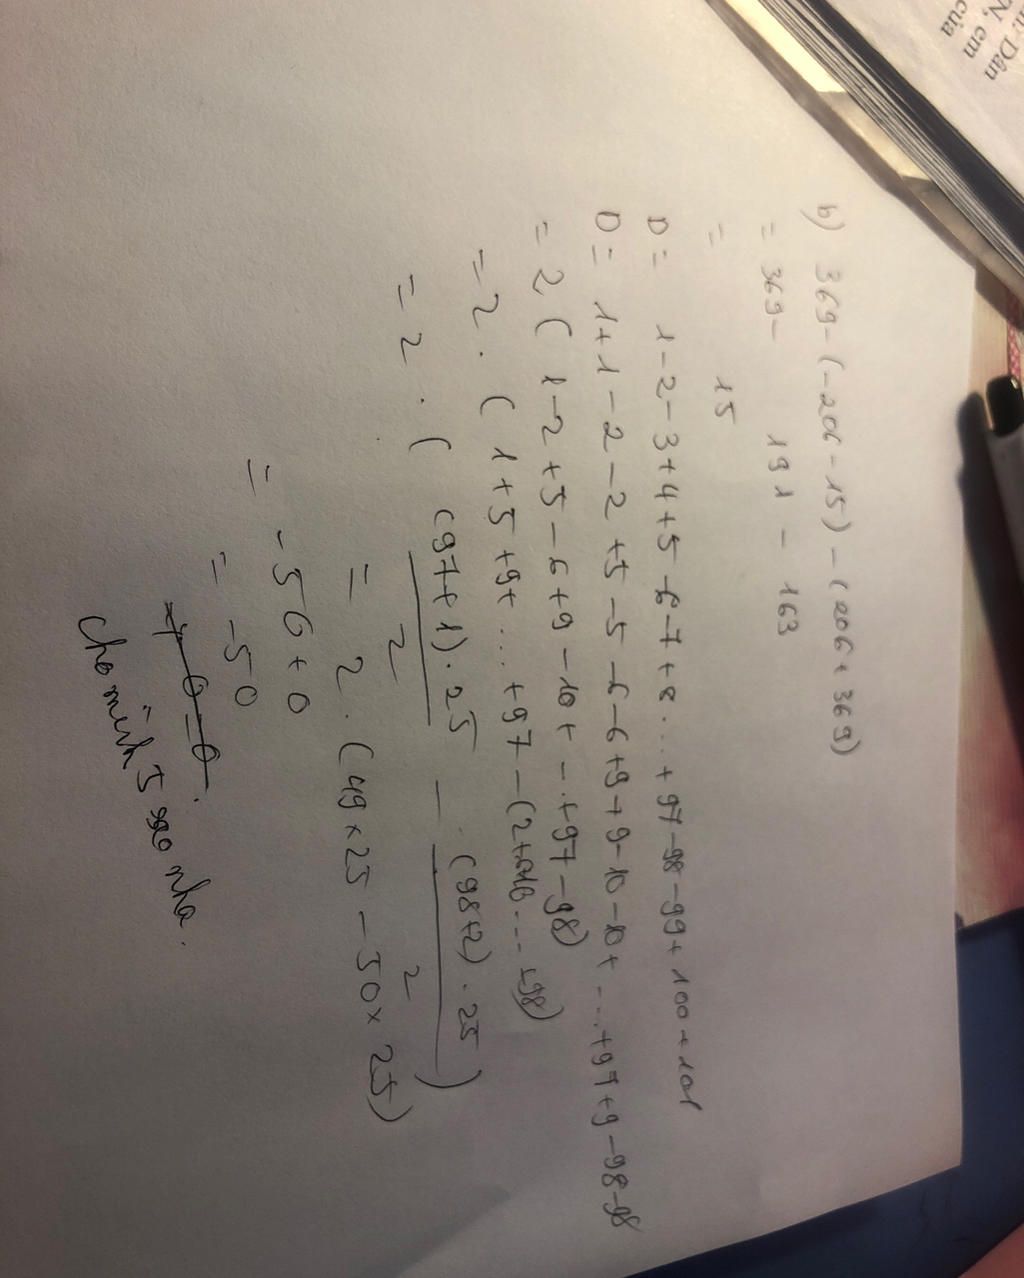 n: Dân
TN, em
của
b) 369 - (-206 - 15) - (206 + 369)
= 369 - 191 - 163
= 15
D = 1 - 2 - 3 + 4 + 5 - 6 - 7 + 8 ... + 97 - 98 - 99 + 100 + 101
D = 1 + 1 - 2 - 2 + 5 - 5 - 6 - 6 + 9 + 9 - 10 - 10 + ... + 97 + 9 - 98 - 98
= 2 ( 1 - 2 + 5 - 6 + 9 - 10 + - .. + 97 - 98)
= 2 . ( 1 + 5 + 9 + ... + 97 - (2 + 10 ... + 98)
= 2 . ( (97 + 1) . 25 / 2 - (98 + 2) . 25 / 2 )
= 2 . (49 x 25 - 50 x 25)
= - 50 + 0
= - 50
cho mình 5 sao nha.